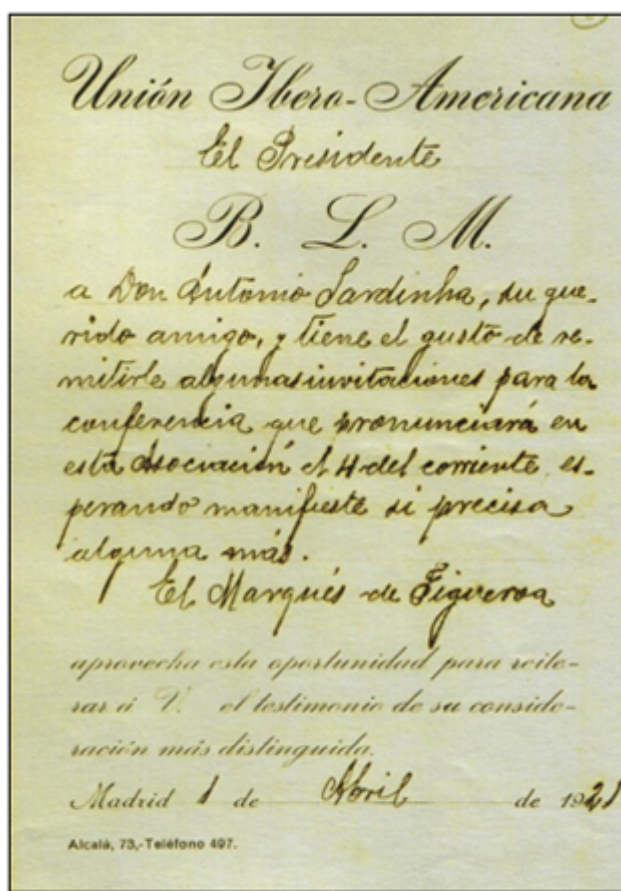 Unión Ibero-Americana
El Presidente
B. L. M.
a Don Antonio Sardinha, su que-
rido amigo, y tiene el gusto de re-
mitirle algunas invitaciones para la
conferencia que pronunciará en
esta Asociación el 4 del corriente, es-
perando manifieste si precisa
alguna más.
El Marqués de Figueroa
aprovecha esta oportunidad para reite-
rar á V. el testimonio de su conside-
ración más distinguida.
Madrid 1 de Abril de 1921
Alcalá, 73,-Teléfono 497.